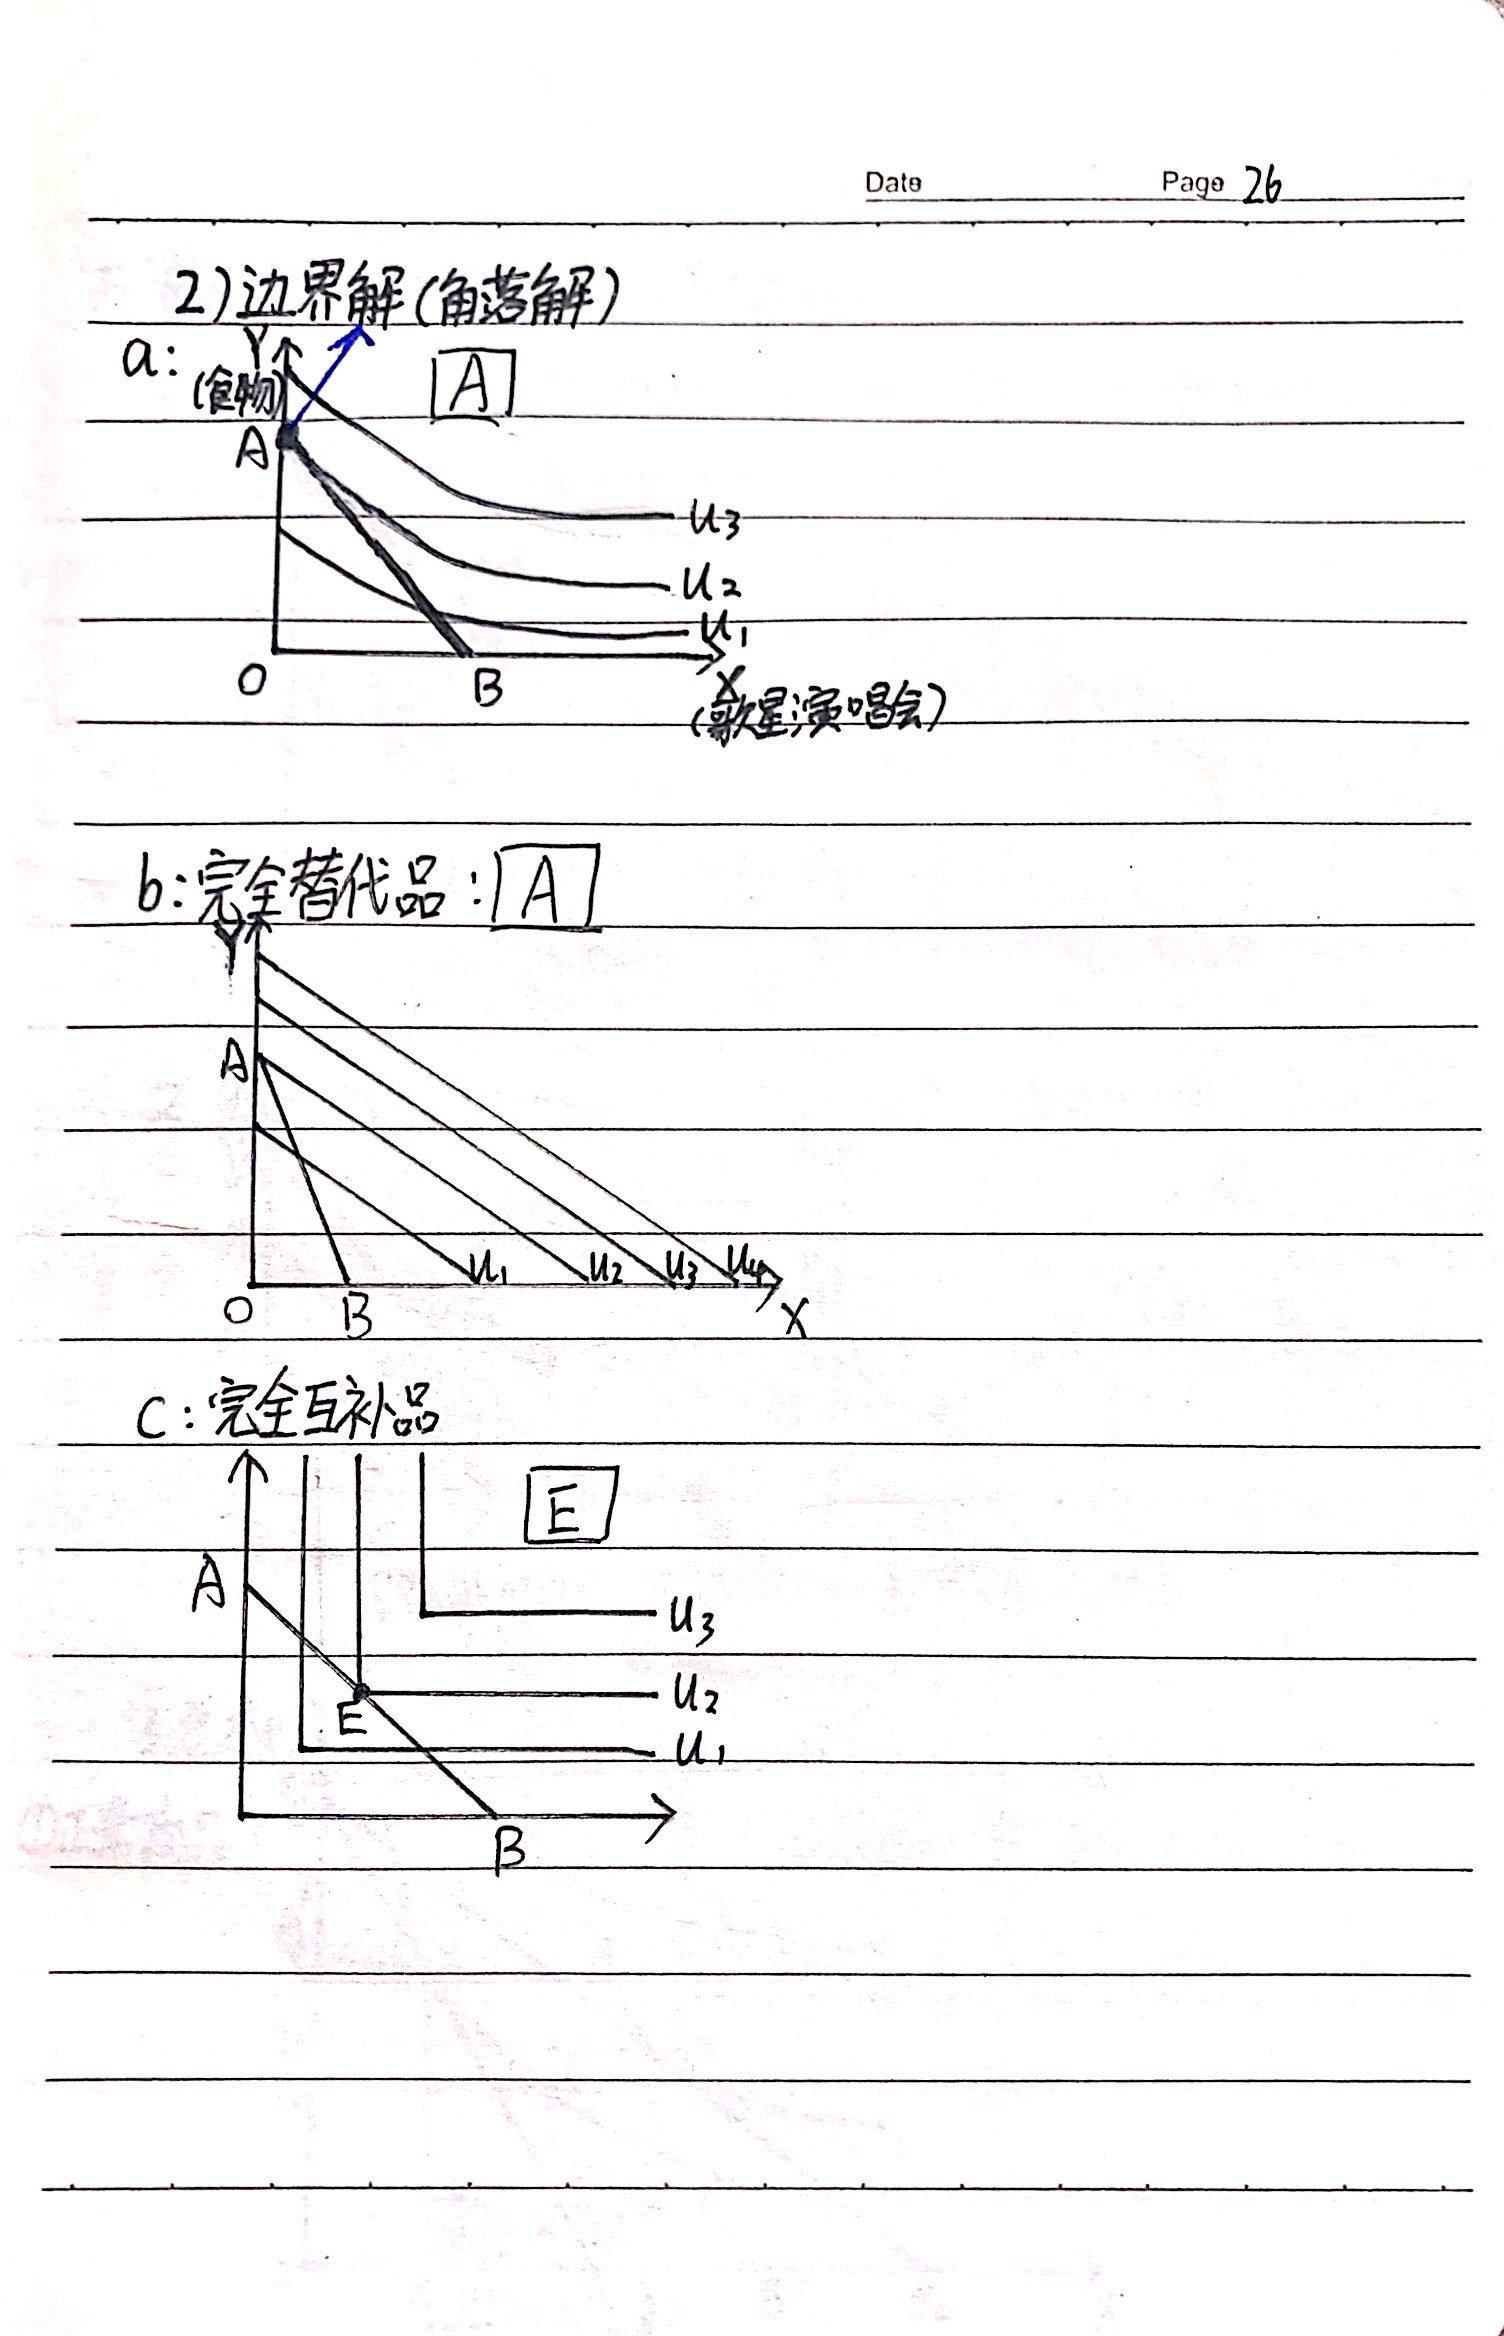 Date Page 26
2)边界解(角落解)
a:
Y
(食物)
A
A
u3
u2
u1
O
B
X
(歌星演唱会)
b:完全替代品:A
Y
A
u1 u2 u3 u4
O B X
c:完全互补品
E
A
u3
u2
E
u1
B